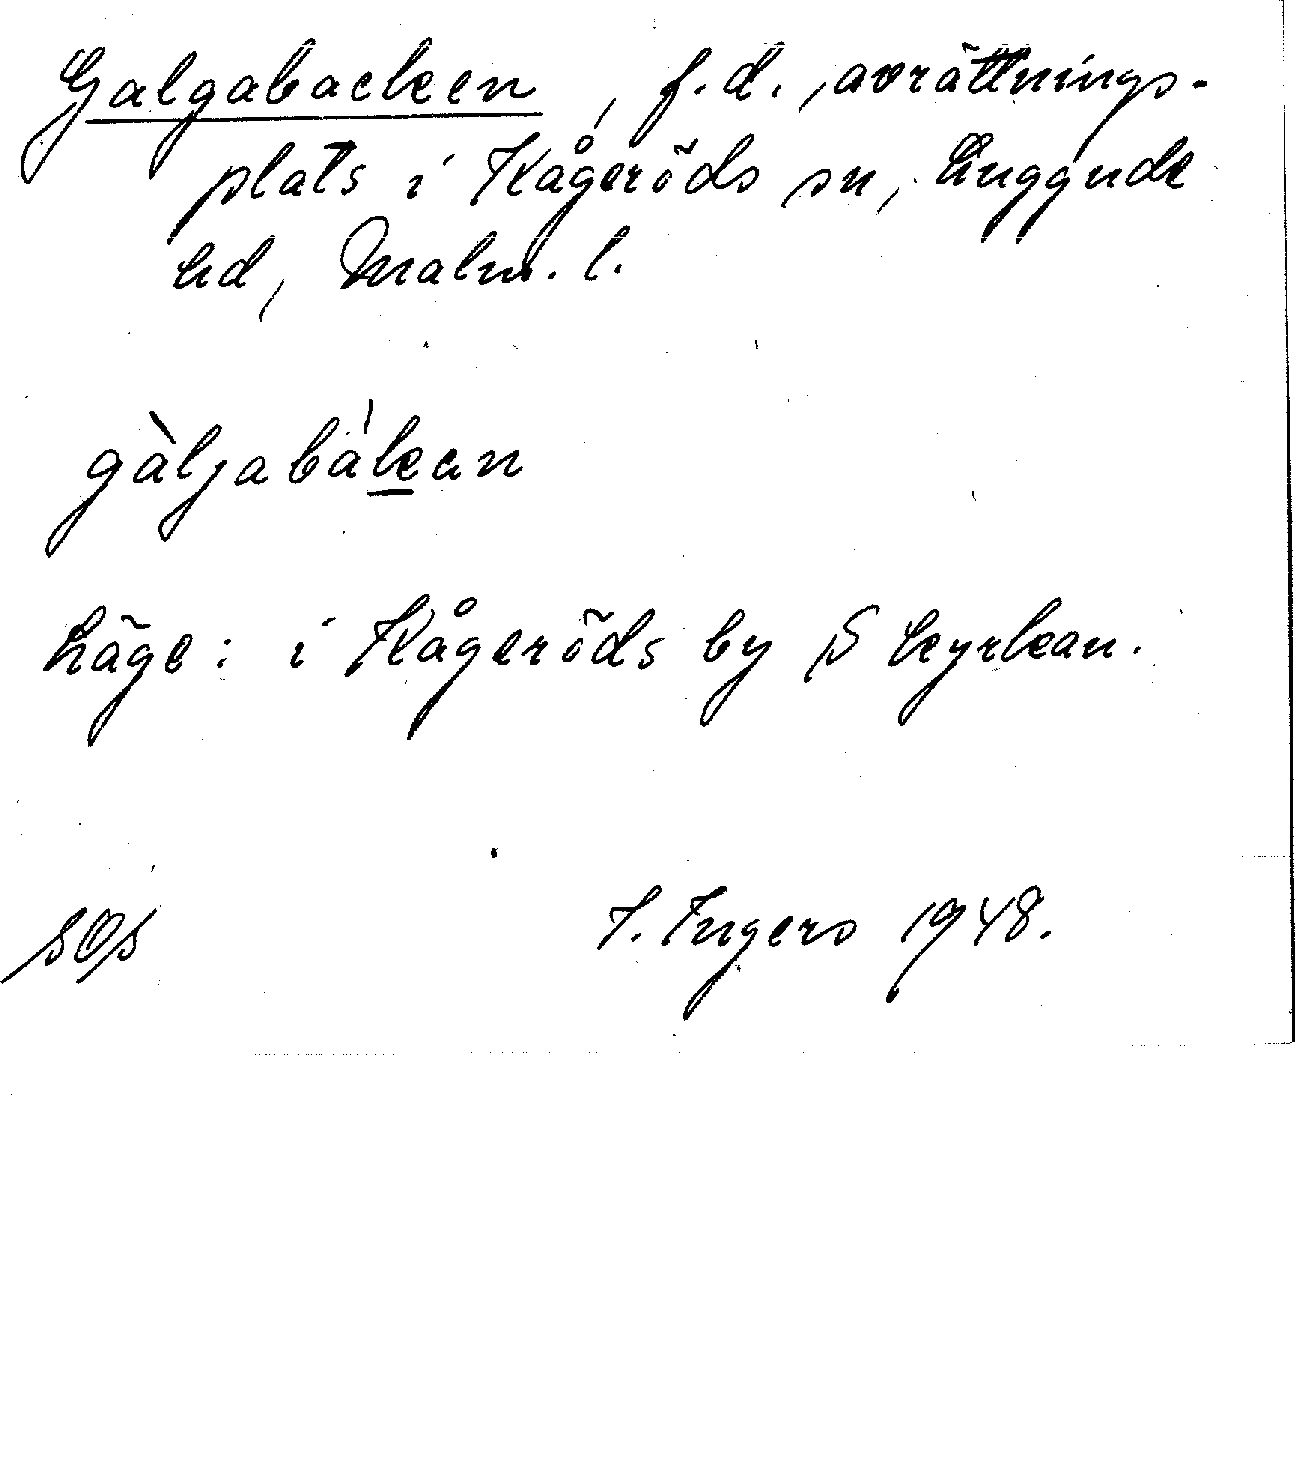 Galgabacken, f.d. avrättnings-
plats i Kågeröds sn, Luggude
hd, Malm. l.
gàljabákan
Läge: i Kågeröds by S kyrkan.
SOS I. Ingers 1948.